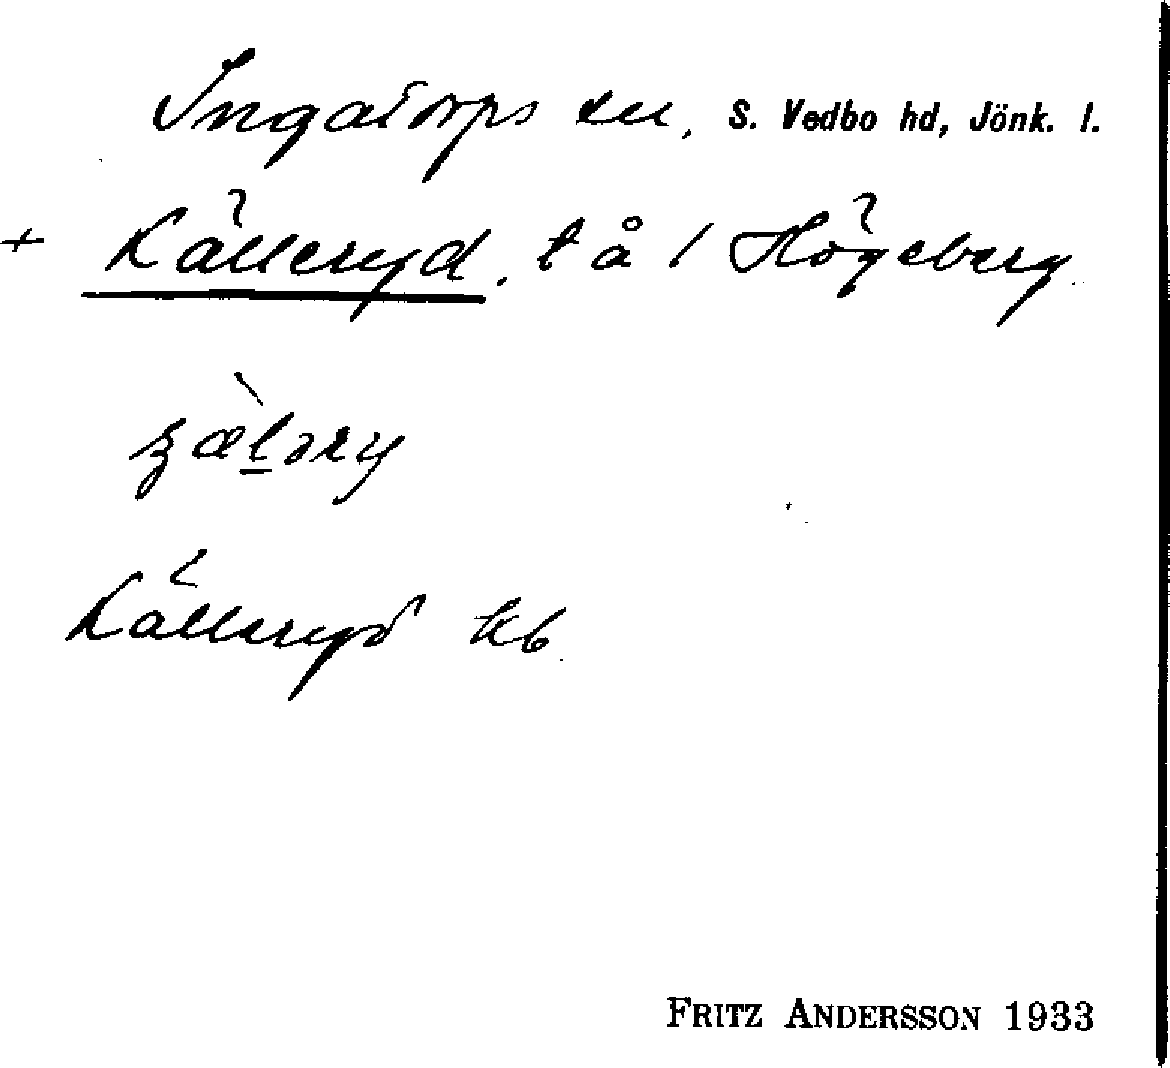 Ingatorps sn, S. Vedbo hd, Jönk. l.
+ Källeryd, t å / Högeberg
Källeryd kb
FRITZ ANDERSSON 1933